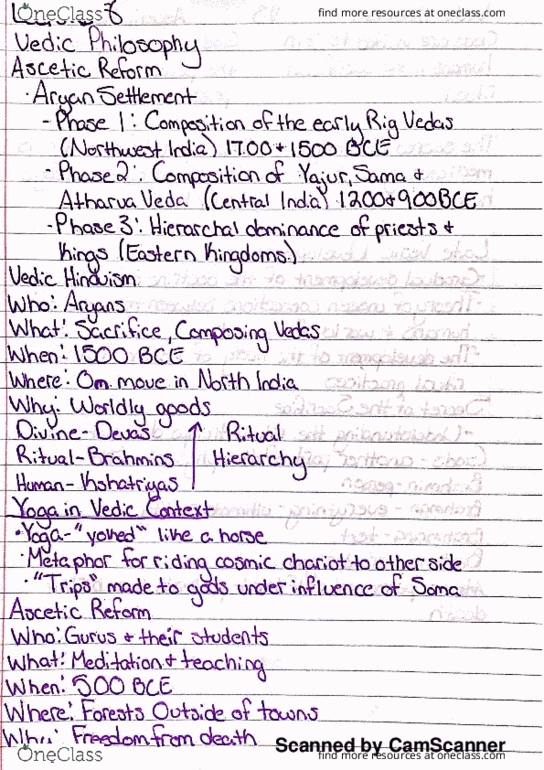 find more resources at oneclass.com
Vedic Philosophy
Ascetic Reform
· Aryan Settlement
- Phase 1: Composition of the early Rig Vedas
(Northwest India) 1700 + 1500 BCE
- Phase 2: Composition of Yajur, Sama +
Atharva Veda (Central India) 1200 + 900 BCE
- Phase 3: Hierarchal dominance of priests +
Kings (Eastern Kingdoms)
Vedic Hinduism
Who: Aryans
What: Sacrifice, Composing Vedas
When: 1500 BCE
Where: On move in North India
Why: Worldly goods
Divine - Devas ↑ Ritual
Ritual - Brahmins Hierarchy
Human - Kshatriyas
Yoga in Vedic Context
· Yoga - "yoked" like a horse
· Metaphor for riding cosmic chariot to other side
· "Trips" made to gods under influence of Soma
Ascetic Reform
Who: Gurus + their students
What: Meditation + teaching
When: 500 BCE
Where: Forests Outside of towns
Why: Freedom from death
Scanned by CamScanner
OneClass
find more resources at oneclass.com